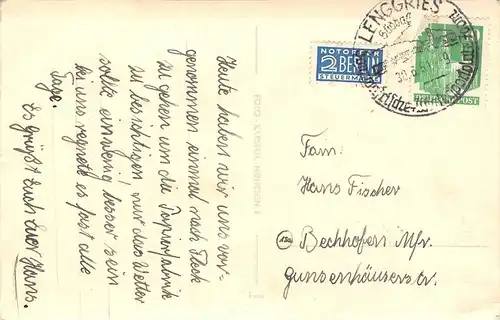 Heute haben wir uns vor-
genommen einmal nach Fleck
zu gehen um die Papierfabrik
zu besichtigen, nur das Wetter
sollte einwenig besser sein
bei uns regnete es fast alle
Tage.
Es grüßt Euch Euer Hans.
NOTOPFER
2 BERLIN
STEUERMARKE
LENGGRIES
POST
Fam:
Hans Fischer
Bechhofen Mfr.
Gunzenhäuserstr.